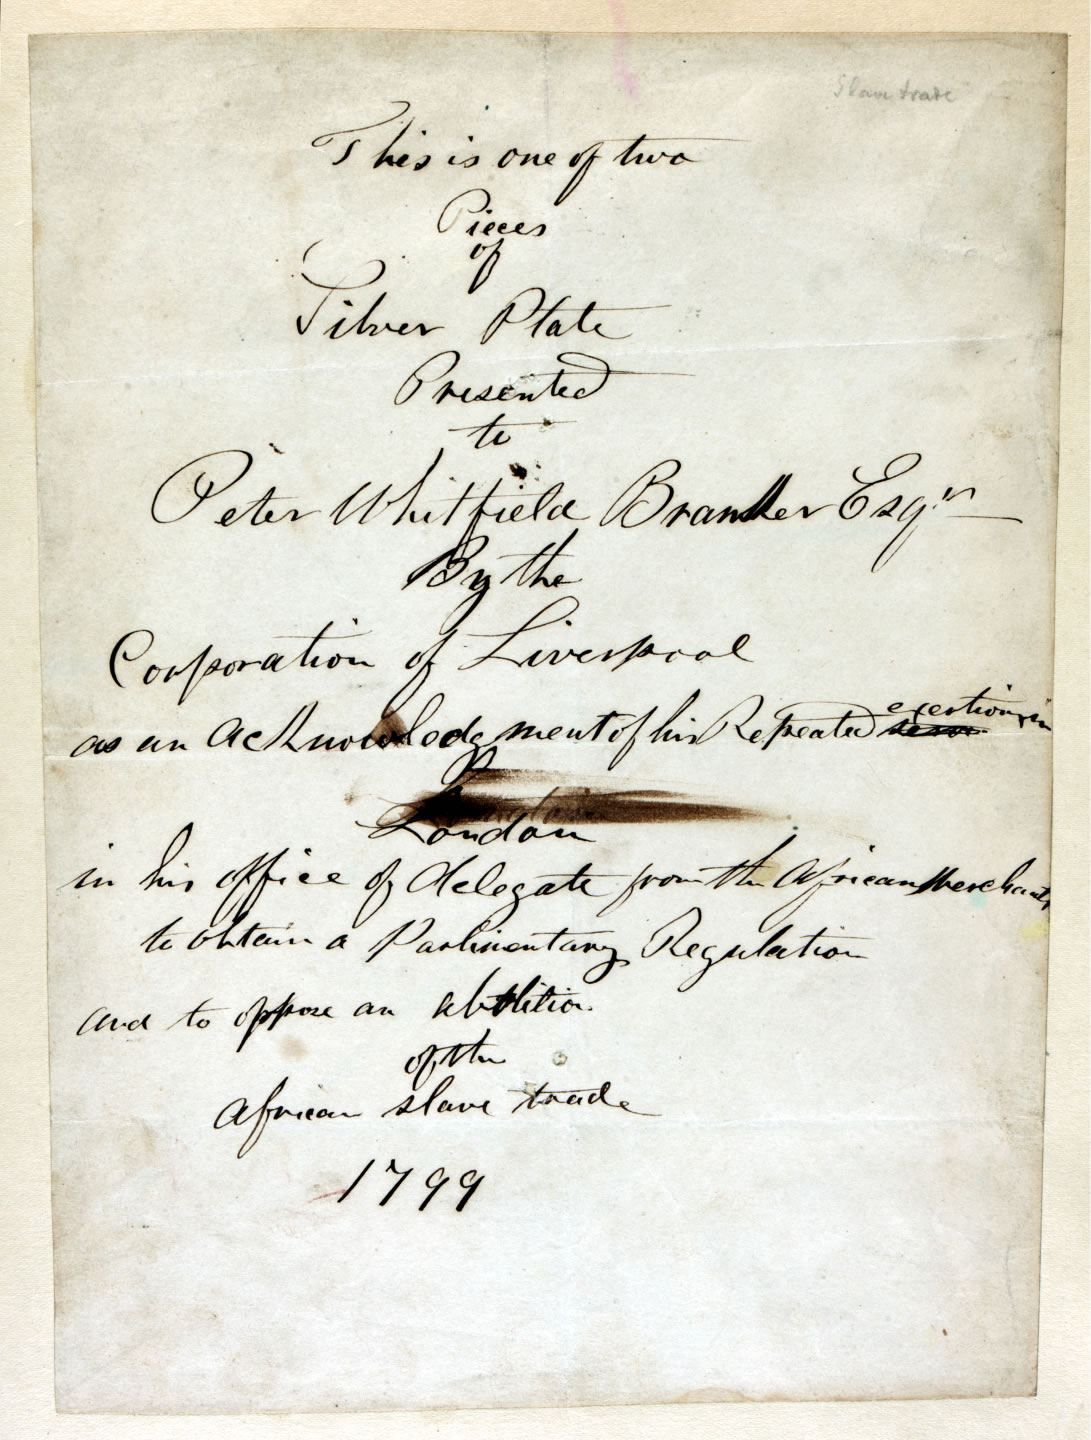 Slave trade
This is one of two
Pieces
of
Silver Plate
Presented
to
Peter Whitfield Brancker Esqr
By the
Corporation of Liverpool
as an acknowledgment of his Repeated exertions in
London
in his office of delegate from the African Merchants
to obtain a Parlimentary Regulation
and to oppose an abolition
of the
African slave trade
1799